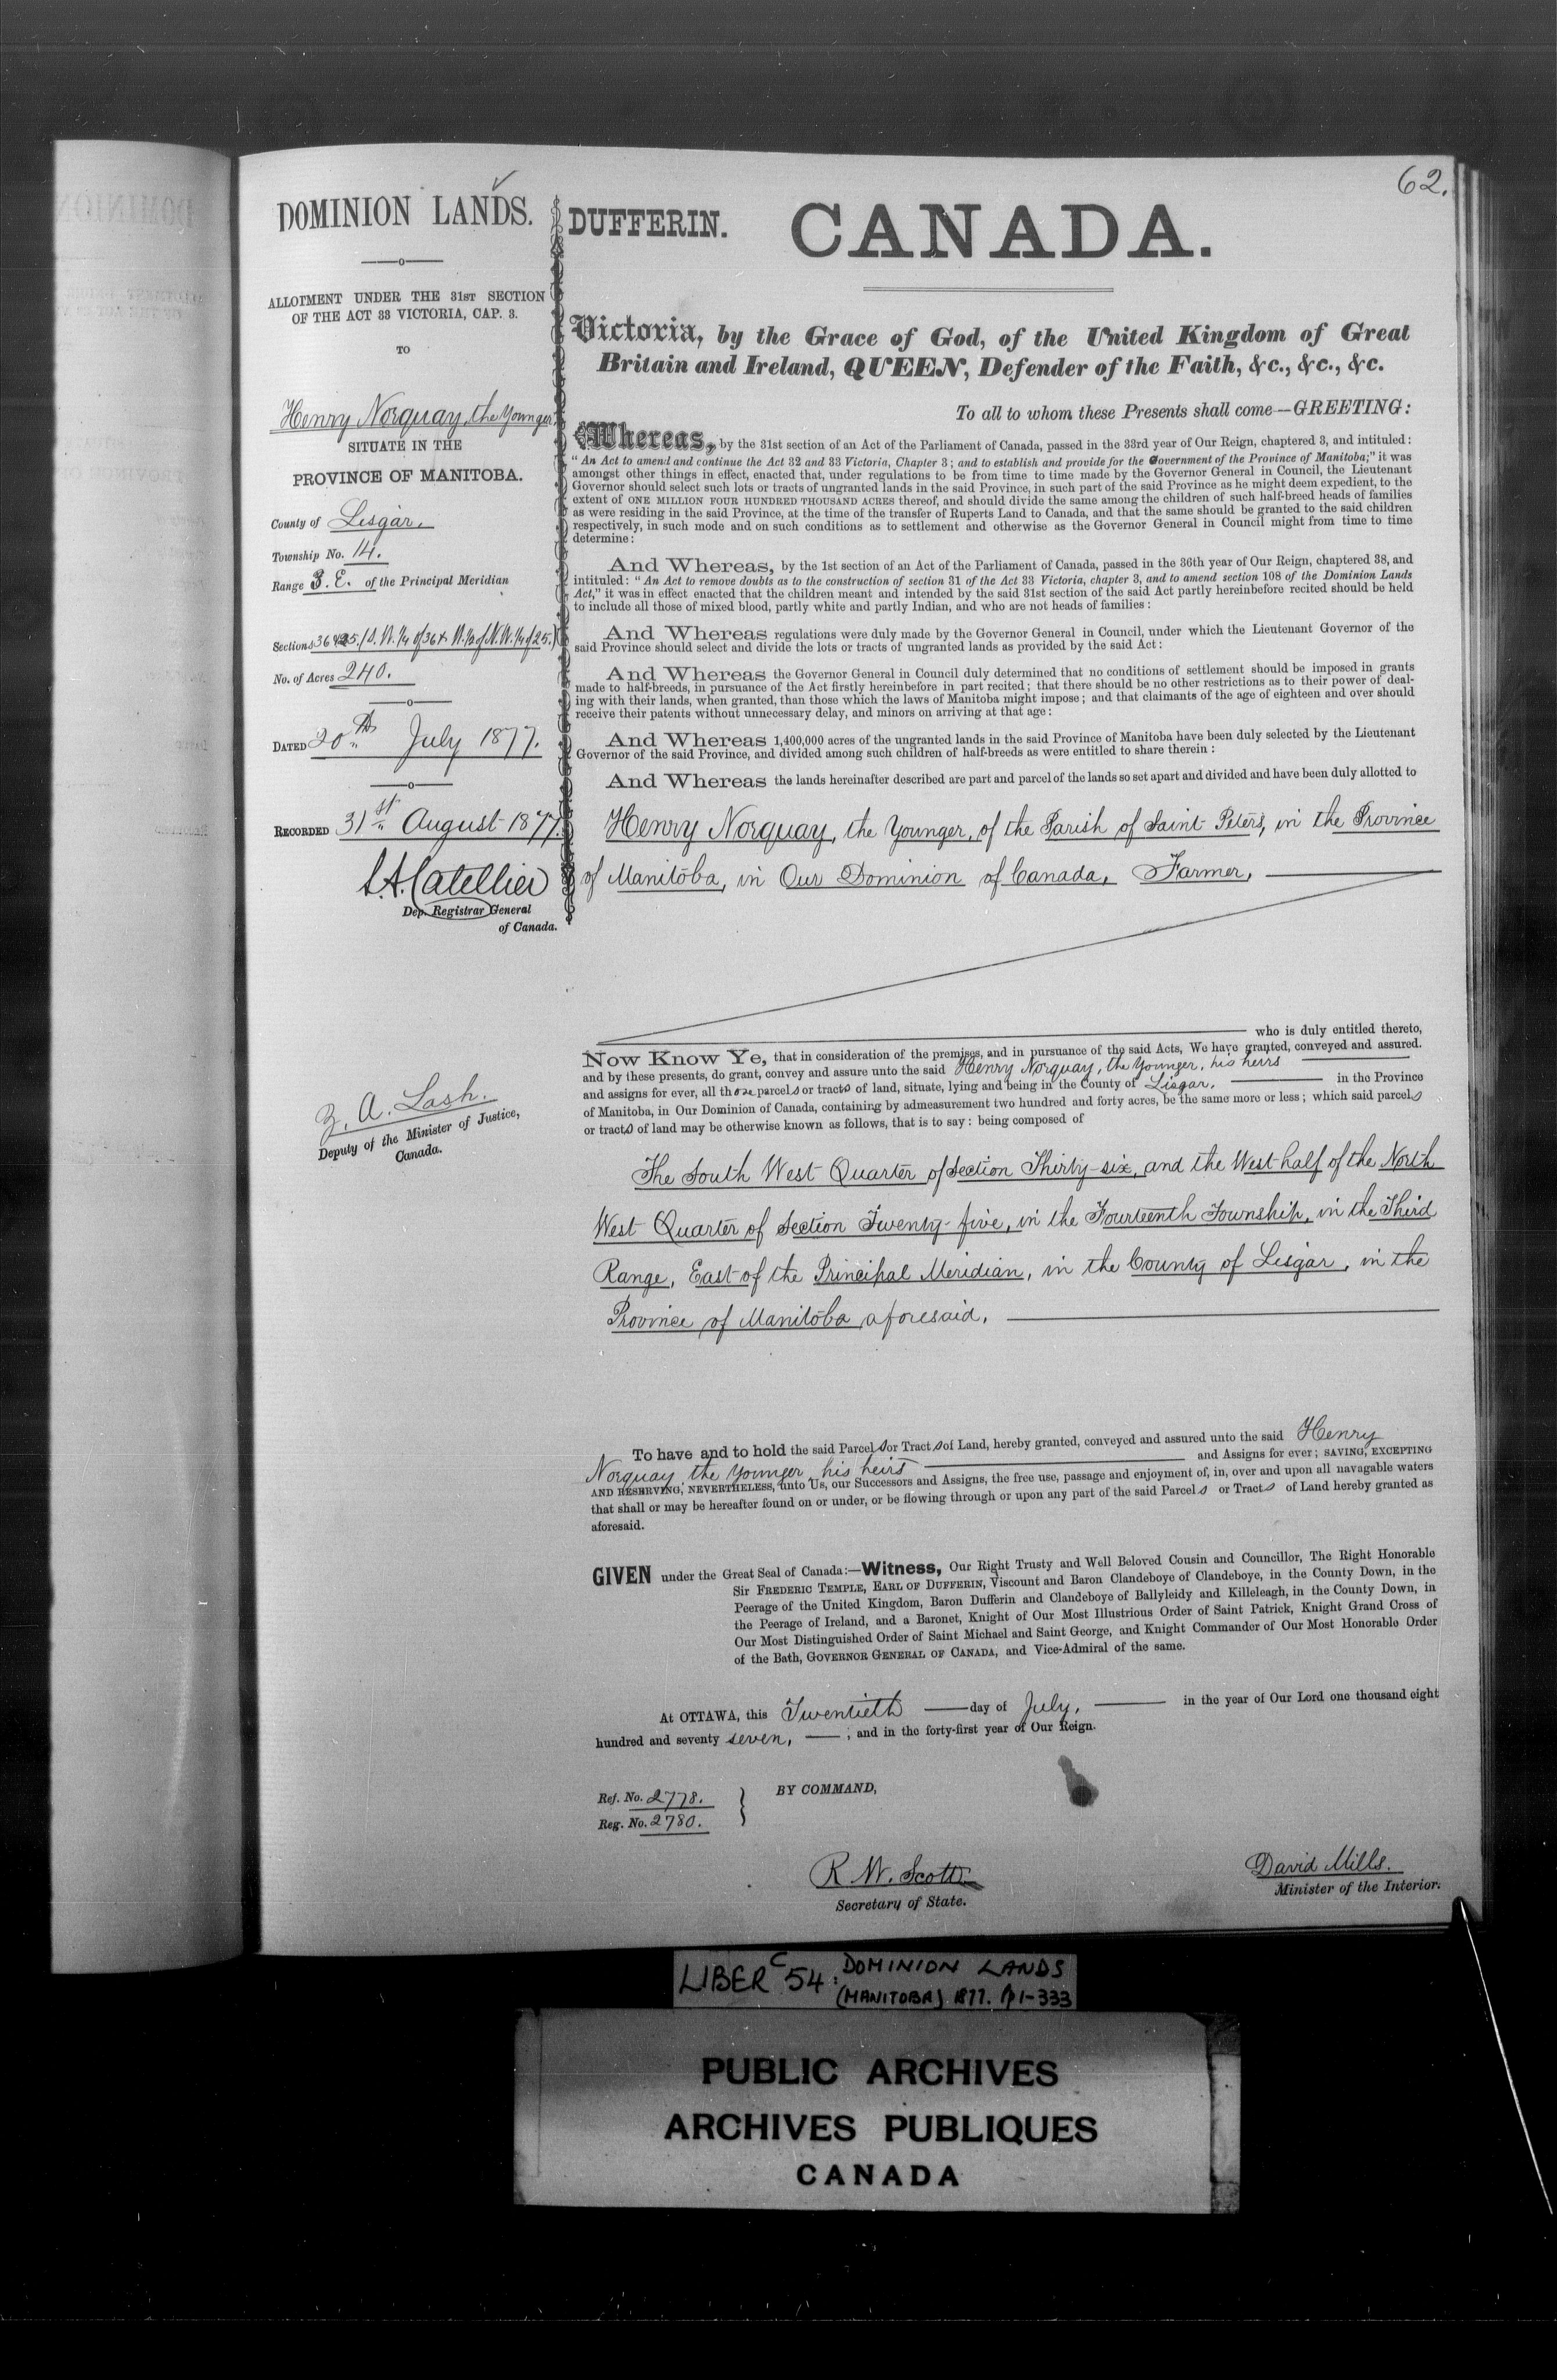 62.
DOMINION LANDS.
ALLOTMENT UNDER THE 31ST SECTION
OF THE ACT 33 VICTORIA, CAP. 3.
TO
Henry Norquay, the Younger
SITUATE IN THE
PROVINCE OF MANITOBA.
County of Lisgar.
Township No. 14.
Range 3. E. of the Principal Meridian
Sections 36 & 25. (S. W. 1/4 of 36 & W. 1/2 of N. W. 1/4 of 25.)
No. of Acres 240.
DATED 20th July 1877.
RECORDED 31st August 1877.
L.A. Catellier
Dep. Registrar General
of Canada.
Z. A. Lash.
Deputy of the Minister of Justice,
Canada.
DUFFERIN. CANADA.
Victoria, by the Grace of God, of the United Kingdom of Great
Britain and Ireland, QUEEN, Defender of the Faith, &c., &c., &c.
To all to whom these Presents shall come—GREETING:
Whereas, by the 31st section of an Act of the Parliament of Canada, passed in the 33rd year of Our Reign, chaptered 3, and intituled:
"An Act to amend and continue the Act 32 and 33 Victoria, Chapter 3; and to establish and provide for the Government of the Province of Manitoba;" it was
amongst other things in effect, enacted that, under regulations to be from time to time made by the Governor General in Council, the Lieutenant
Governor should select such lots or tracts of ungranted lands in the said Province, in such part of the said Province as he might deem expedient, to the
extent of ONE MILLION FOUR HUNDRED THOUSAND ACRES thereof, and should divide the same among the children of such half-breed heads of families
as were residing in the said Province, at the time of the transfer of Ruperts Land to Canada, and that the same should be granted to the said children
respectively, in such mode and on such conditions as to settlement and otherwise as the Governor General in Council might from time to time
determine:
And Whereas, by the 1st section of an Act of the Parliament of Canada, passed in the 36th year of Our Reign, chaptered 38, and
intituled: "An Act to remove doubts as to the construction of section 31 of the Act 33 Victoria, chapter 3, and to amend section 108 of the Dominion Lands
Act," it was in effect enacted that the children meant and intended by the said 31st section of the said Act partly hereinbefore recited should be held
to include all those of mixed blood, partly white and partly Indian, and who are not heads of families:
And Whereas regulations were duly made by the Governor General in Council, under which the Lieutenant Governor of the
said Province should select and divide the lots or tracts of ungranted lands as provided by the said Act:
And Whereas the Governor General in Council duly determined that no conditions of settlement should be imposed in grants
made to half-breeds, in pursuance of the Act firstly hereinbefore in part recited; that there should be no other restrictions as to their power of deal-
ing with their lands, when granted, than those which the laws of Manitoba might impose; and that claimants of the age of eighteen and over should
receive their patents without unnecessary delay, and minors on arriving at that age:
And Whereas 1,400,000 acres of the ungranted lands in the said Province of Manitoba have been duly selected by the Lieutenant
Governor of the said Province, and divided among such children of half-breeds as were entitled to share therein:
And Whereas the lands hereinafter described are part and parcel of the lands so set apart and divided and have been duly allotted to
Henry Norquay, the Younger, of the Parish of Saint Peters, in the Province
of Manitoba, in Our Dominion of Canada, Farmer,
who is duly entitled thereto,
Now Know Ye, that in consideration of the premises, and in pursuance of the said Acts, We have granted, conveyed and assured.
and by these presents, do grant, convey and assure unto the said Henry Norquay, the Younger, his heirs
and assigns for ever, all those parcels or tracts of land, situate, lying and being in the County of Lisgar, in the Province
of Manitoba, in Our Dominion of Canada, containing by admeasurement two hundred and forty acres, be the same more or less; which said parcels
or tracts of land may be otherwise known as follows, that is to say: being composed of
The South West Quarter of Section Thirty-six, and the West half of the North
West Quarter of Section Twenty-five, in the Fourteenth Township, in the Third
Range, East of the Principal Meridian, in the County of Lisgar, in the
Province of Manitoba aforesaid.
To have and to hold the said Parcels or Tracts of Land, hereby granted, conveyed and assured unto the said Henry
Norquay, the Younger, his heirs and Assigns for ever; SAVING, EXCEPTING
AND RESERVING, NEVERTHELESS, unto Us, our Successors and Assigns, the free use, passage and enjoyment of, in, over and upon all navagable waters
that shall or may be hereafter found on or under, or be flowing through or upon any part of the said Parcels or Tracts of Land hereby granted as
aforesaid.
GIVEN under the Great Seal of Canada:—Witness, Our Right Trusty and Well Beloved Cousin and Councillor, The Right Honorable
Sir FREDERIC TEMPLE, EARL OF DUFFERIN, Viscount and Baron Clandeboye of Clandeboye, in the County Down, in the
Peerage of the United Kingdom, Baron Dufferin and Clandeboye of Ballyleidy and Killeleagh, in the County Down, in
the Peerage of Ireland, and a Baronet, Knight of Our Most Illustrious Order of Saint Patrick, Knight Grand Cross of
Our Most Distinguished Order of Saint Michael and Saint George, and Knight Commander of Our Most Honorable Order
of the Bath, GOVERNOR GENERAL OF CANADA, and Vice-Admiral of the same.
At OTTAWA, this Twentieth day of July, in the year of Our Lord one thousand eight
hundred and seventy seven, ; and in the forty-first year of Our Reign.
Ref. No. 2778.
Reg. No. 2780.
BY COMMAND,
R. W. Scott
Secretary of State.
David Mills.
Minister of the Interior.
LIBER C 54: DOMINION LANDS
(MANITOBA) 1877. pp 1-333
PUBLIC ARCHIVES
ARCHIVES PUBLIQUES
CANADA